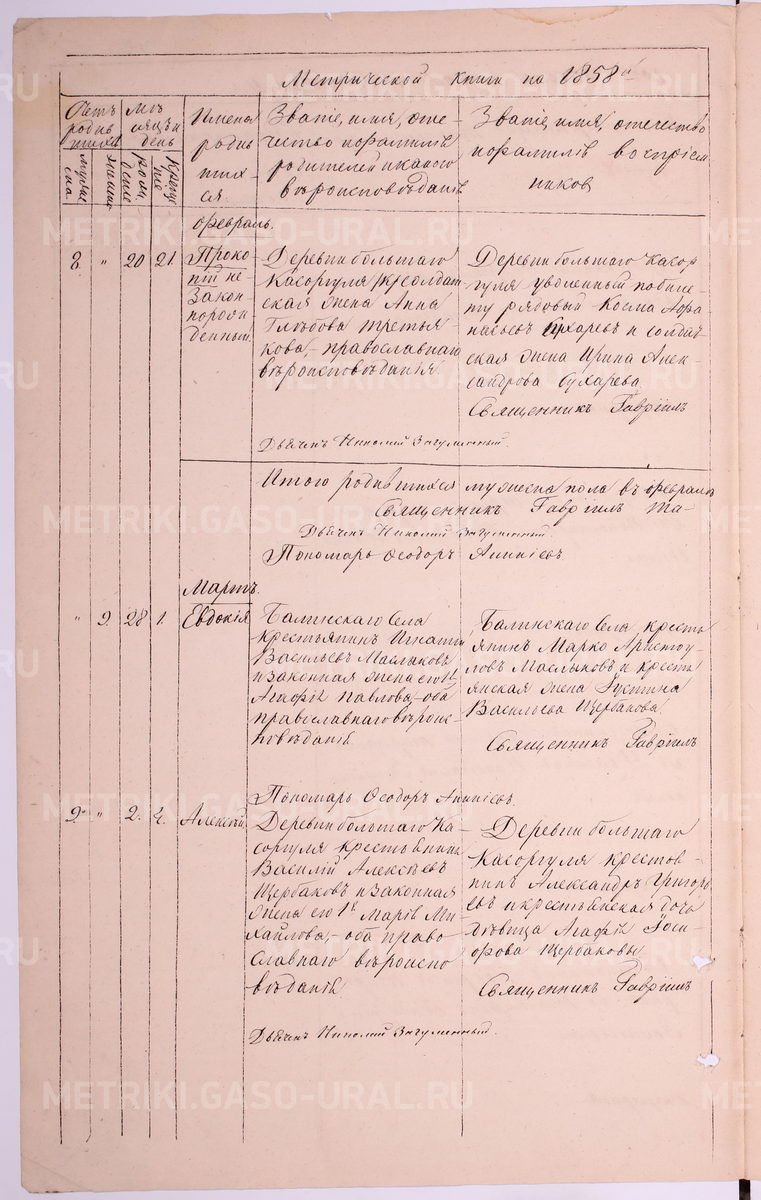 Метрической книги на 1858й
Счетъ родившихся
Мѣсяцъ и день
Имена родившихся.
Званіе, имя, отечество и фамилія родителей и какого вѣроисповѣданія
Званіе, имя, отечество и фамилія воспріемниковъ
мужеска
женска
рожденія
крещенія
Февраль.
8. " 20 21.
Прокопій незаконнорожденный.
Деревни большаго
Касоргуля солдатская жена Анна
Глѣбова Третьякова, православнаго
вѣроисповѣданія.
Деревни большаго Касоргуля уволенный по билету рядовый Косма Афанасьевъ Сухаревъ и солдатская жена Ирина Александрова Сухарева.
Священникъ Гавріилъ
Дьячекъ Николай
Итого родившихся мужеска пола въ февралѣ
Священникъ Гавріилъ
Дьячекъ Николай
Пономарь Феодоръ
Мартъ.
" 9. 28 1.
Евдокія
села
крестьянинъ Игнатій
Васильевъ Маслаковъ
и законная жена его
Агафія Павлова, оба
православнаго вѣроисповѣданія.
села крестьянинъ Марко
Маслыковъ и крестьянская жена
Васильева Щербакова.
Священникъ Гавріилъ
Пономарь Феодоръ
9. " 2. 4.
Алексѣй
Деревни большаго Касоргуля крестьянинъ
Василій Алексѣевъ
Щербаковъ и законная
жена его Марія Михайлова, оба православнаго вѣроисповѣданія.
Деревни большаго
Касоргуля крестьянинъ Александръ Григорьевъ и крестьянская дочь
дѣвица Агафія
Щербаковы.
Священникъ Гавріилъ
Дьячекъ Николай
METRIKI.GASO-URAL.RU